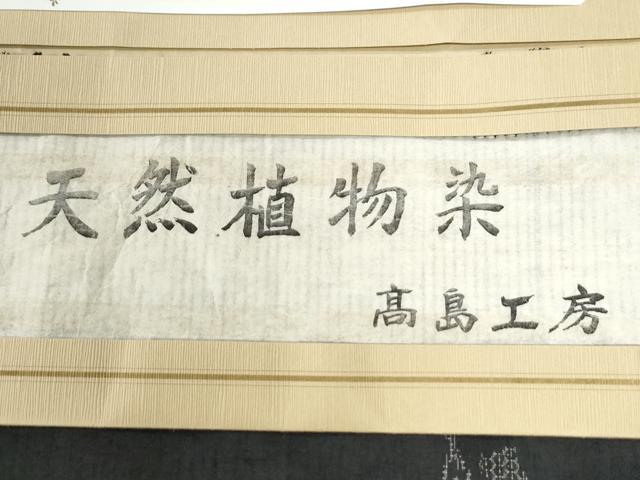 天然植物染
髙島工房